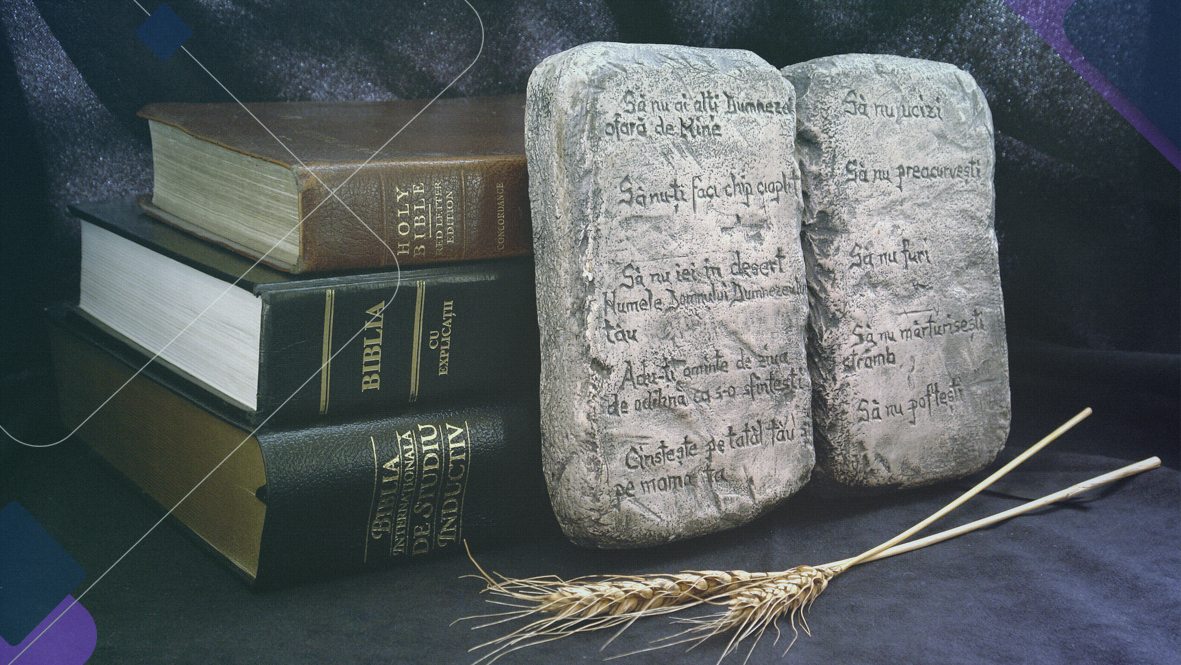 HOLY
BIBLE
RED LETTER
EDITION
CONCORDANCE
BIBLIA
CU
EXPLICAȚII
BIBLIA
INTERNAȚIONALĂ
DE STUDIU
INDUCTIV
Să nu ai alți Dumneze
afară de Mine
Sănu-ți faci chip cioplit
Să nu iei în deșert
Numele Domnului Dumnezeului
tău
Adu-ți aminte de ziua
de odihnă ca s-o sfințești
Cinstește pe tatăl tău
pe mama ta
Să nu ucizi
Să nu preacurvești
Să nu furi
Să nu mărturisești
strâmb
Să nu poftești